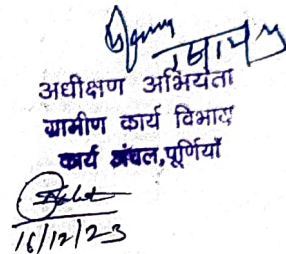 अधीक्षण अभियंता
ग्रामीण कार्य विभाग
कार्य अंचल,पूर्णियाँ
16/12/23